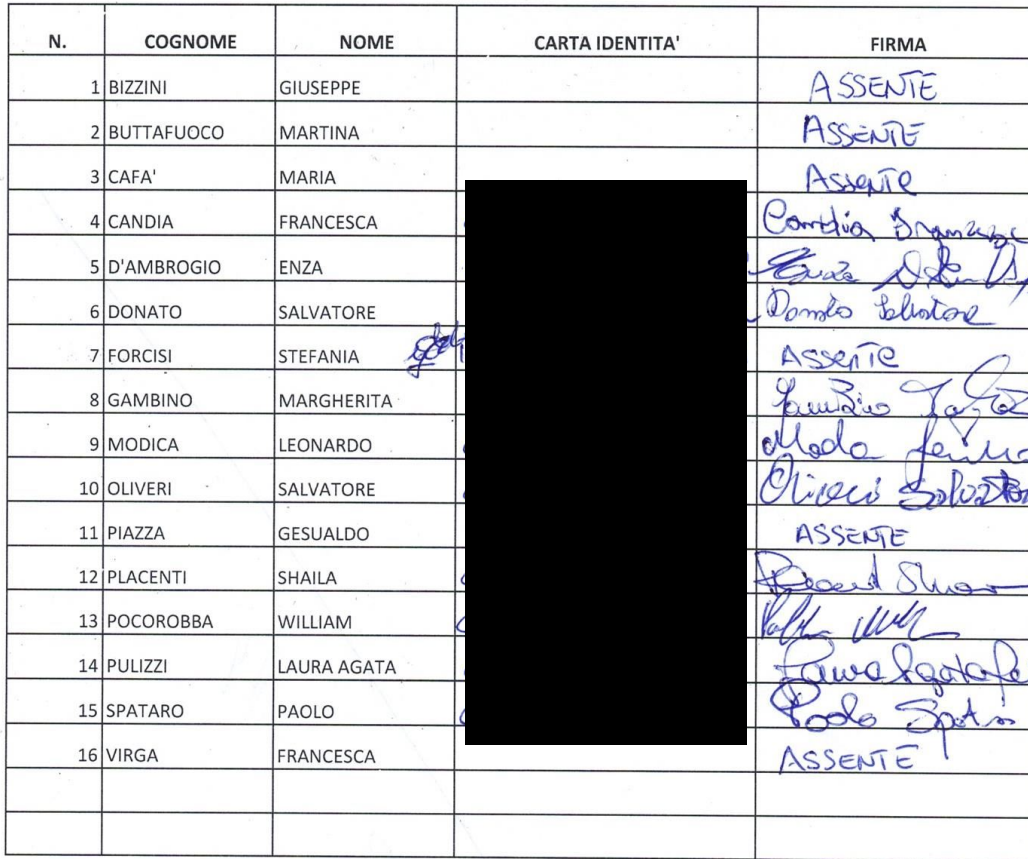 N. COGNOME NOME CARTA IDENTITA' FIRMA
1 BIZZINI GIUSEPPE ASSENTE
2 BUTTAFUOCO MARTINA ASSENTE
3 CAFA' MARIA ASSENTE
4 CANDIA FRANCESCA Candia
5 D'AMBROGIO ENZA Enza
6 DONATO SALVATORE Donato Salvatore
7 FORCISI STEFANIA ASSENTE
8 GAMBINO MARGHERITA
9 MODICA LEONARDO
10 OLIVERI SALVATORE Oliveri Salvator
11 PIAZZA GESUALDO ASSENTE
12 PLACENTI SHAILA
13 POCOROBBA WILLIAM
14 PULIZZI LAURA AGATA Laura Agata
15 SPATARO PAOLO Paolo
16 VIRGA FRANCESCA ASSENTE